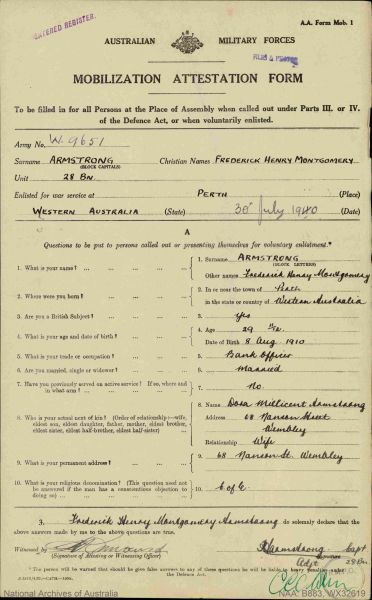 ENTERED REGISTER.
A.A. Form Mob. 1
AUSTRALIAN MILITARY FORCES
MOBILIZATION ATTESTATION FORM
To be filled in for all Persons at the Place of Assembly when called out under Parts III. or IV.
of the Defence Act, or when voluntarily enlisted.
Army No. W. 9651
Surname ARMSTRONG Christian Names FREDERICK HENRY MONTGOMERY
(BLOCK CAPITALS)
Unit 28 BN
Enlisted for war service at PERTH (Place)
WESTERN AUSTRALIA (State) 30 July 1940 (Date)
A
Questions to be put to persons called out or presenting themselves for voluntary enlistment.*
1. What is your name? ... 1. Surname ARMSTRONG
(BLOCK LETTERS)
Other names Frederick Henry Montgomery
2. Where were you born? ... 2. In or near the town of Perth
in the state or country of Western Australia
3. Are you a British Subject? ... 3. Yes
4. What is your age and date of birth? ... 4. Age 29
Date of Birth 8 Aug. 1910
5. What is your trade or occupation? ... 5. Bank Officer
6. Are you married, single or widower? ... 6. Married
7. Have you previously served on active service? If so, where and in what arm? ... 7. No.
8. Who is your actual next of kin? (Order of relationship:—wife, eldest son, eldest daughter, father, mother, eldest brother, eldest sister, eldest half-brother, eldest half-sister)
8. Name Dora Millicent Armstrong
Address 68 Nanson Street
Wembley
Relationship Wife
9. What is your permanent address? ... 9. 68 Nanson St. Wembley
10. What is your religious denomination? (This question need not be answered if the man has a conscientious objection to doing so) ... 10. C of E.
3. Frederick Henry Montgomery Armstrong do solemnly declare that the
above answers made by me to the above questions are true.
Witnessed by
(Signature of Attesting or Witnessing Officer)
Armstrong Capt
Adjt 28 Bn
* The person will be warned that should he give false answers to any of these questions he will be liable to heavy penalties under
the Defence Act.
National Archives of Australia
NAA: B883, WX32619